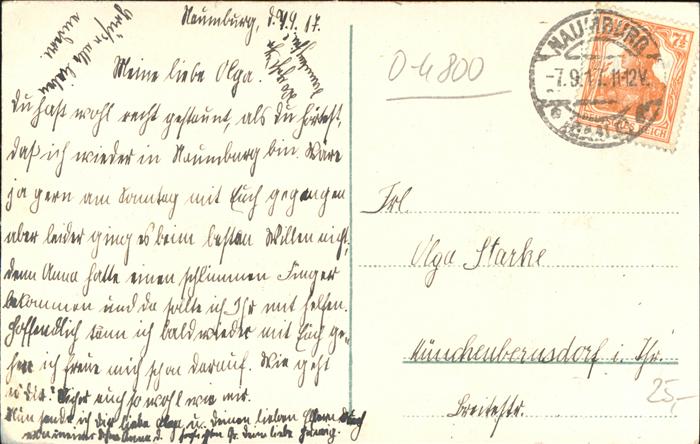 Naumburg, d. 7.9.17.
Meine liebe Olga.
Du hast wohl recht gestaunt, als Du hörtest,
daß ich wieder in Naumburg bin. Wäre
ja gern am Sonntag mit Euch gegangen
aber leider ging es beim besten Willen nicht,
denn Anna hatte einen schlimmen Finger
bekommen und da sollte ich Ihr mit helfen.
Hoffentlich kann ich bald wieder mit Euch ge-
hen ich freue mich schon darauf. Wie geht
es Dir? Sicher auch so wohl wie mir.
Nun sende ich Dir liebe Olga u. Deinen lieben Eltern
Anna herzlichsten Gr. Deine liebe
Grüße alle lieben
0-4800
NAUMBURG
-7.9.17. 11-12V.
(SAALE)
7½
DEUTSCHES REICH
Frl.
Olga Starke
Münchenbernsdorf i. Thr.
Breitestr.
25,-